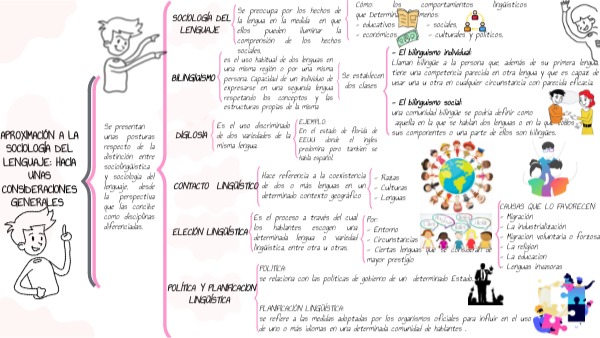 APROXIMACIÓN A LA
SOCIOLOGÍA DEL
LENGUAJE: HACIA
UNAS
CONSIDERACIONES
GENERALES
Se presentan
unas posturas
respecto de la
distinción entre
sociolingüística
y sociología del
lenguaje, desde
la perspectiva
que las concibe
como disciplinas
diferenciadas.
SOCIOLOGÍA DEL
LENGUAJE
Se preocupa por los hechos de
la lengua en la medida en que
ellos pueden iluminar la
comprensión de los hechos
sociales,
Cómo: los comportamientos lingüísticos
que Determinan
- educativos
- económicos
- sociales,
- culturales y políticos.
BILINGÜISMO
es el uso habitual de dos lenguas en
una misma región o por una misma
persona. Capacidad de un individuo de
expresarse en una segunda lengua
respetando los conceptos y las
estructuras propias de la misma
Se establecen
dos clases
- El bilinguismo individual:
Llaman bilingüe a la persona que, además de su primera lengua,
tiene una competencia parecida en otra lengua y que es capaz de
usar una u otra en cualquier circunstancia con parecida eficacia.
- El bilinguismo social:
una comunidad bilingüe se podría definir como
aquella en la que se hablan dos lenguas o en la que todos
sus componentes o una parte de ellos son bilingües.
DIGLOSIA
Es el uso discriminado
de dos variedades de la
misma lengua
EJEMPLO
En el estado de florida de
EEUU donde el ingles
predomina pero también se
habla español.
CONTACTO LINGÜÍSTICO
Hace referencia a la coexistencia
de dos o más lenguas en un
determinado contexto geográfico
- Razas
- Culturas
- Lenguas
ELECIÓN LINGÜÍSTICA
Es el proceso a través del cual
los hablantes escogen una
determinada lengua o variedad
lingüística entre otra u otras.
Por:
- Entorno
- Circunstancias
- Ciertas lenguas que se consideran de
mayor prestigio
CAUSAS QUE LO FAVORECEN:
- Migración
- La industrialización
- Migracion voluntaria o forzosa
- La religion
- La educacion
- Lenguas invasoras
POLÍTICA Y PLANIFICACION
LINGÜÍSTICA
POLITICA:
se relaciona con las políticas de gobierno de un determinado Estado.
PLANIFICACIÓN LINGÜÍSTICA:
se refiere a las medidas adoptadas por los organismos oficiales para influir en el uso
de uno o más idiomas en una determinada comunidad de hablantes .